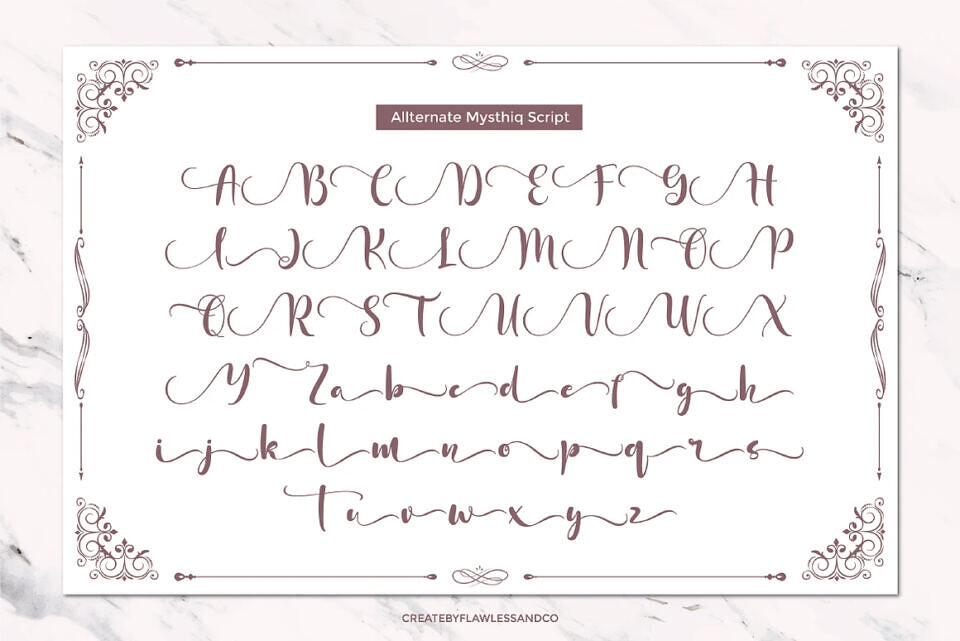 Allternate Mysthiq Script
A B C D E F G H
I J K L M N O P
Q R S T U V W X
Y Z a b c d e f g h
i j k l m n o p q r s
T u v w x y z
CREATEBYFLAWLESSANDCO